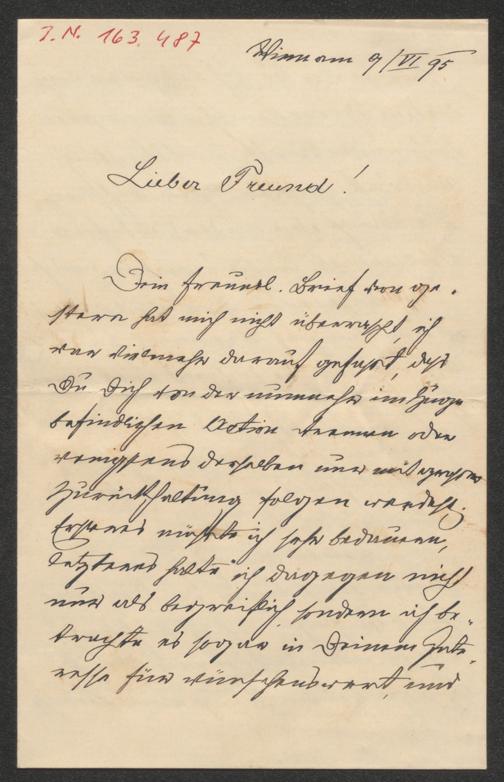 I. N. 163.487
Wien am 9/VI 95
Lieber Freund!
Dein freundl. Brief von ge-
stern hat mich nicht überrascht, ich
war vielmehr darauf gefasst, dass
Du Dich von der nunmehr im Zuge
befindlichen Action trennen oder
wenigstens derselben nur mit grosser
Zurückhaltung folgen werdest.
Ersteres müsste ich sehr bedauern,
letzteres halte ich dagegen nicht
nur als begreiflich, sondern ich be-
trachte es sogar in Deinem Inte-
resse für wünschenswert, und